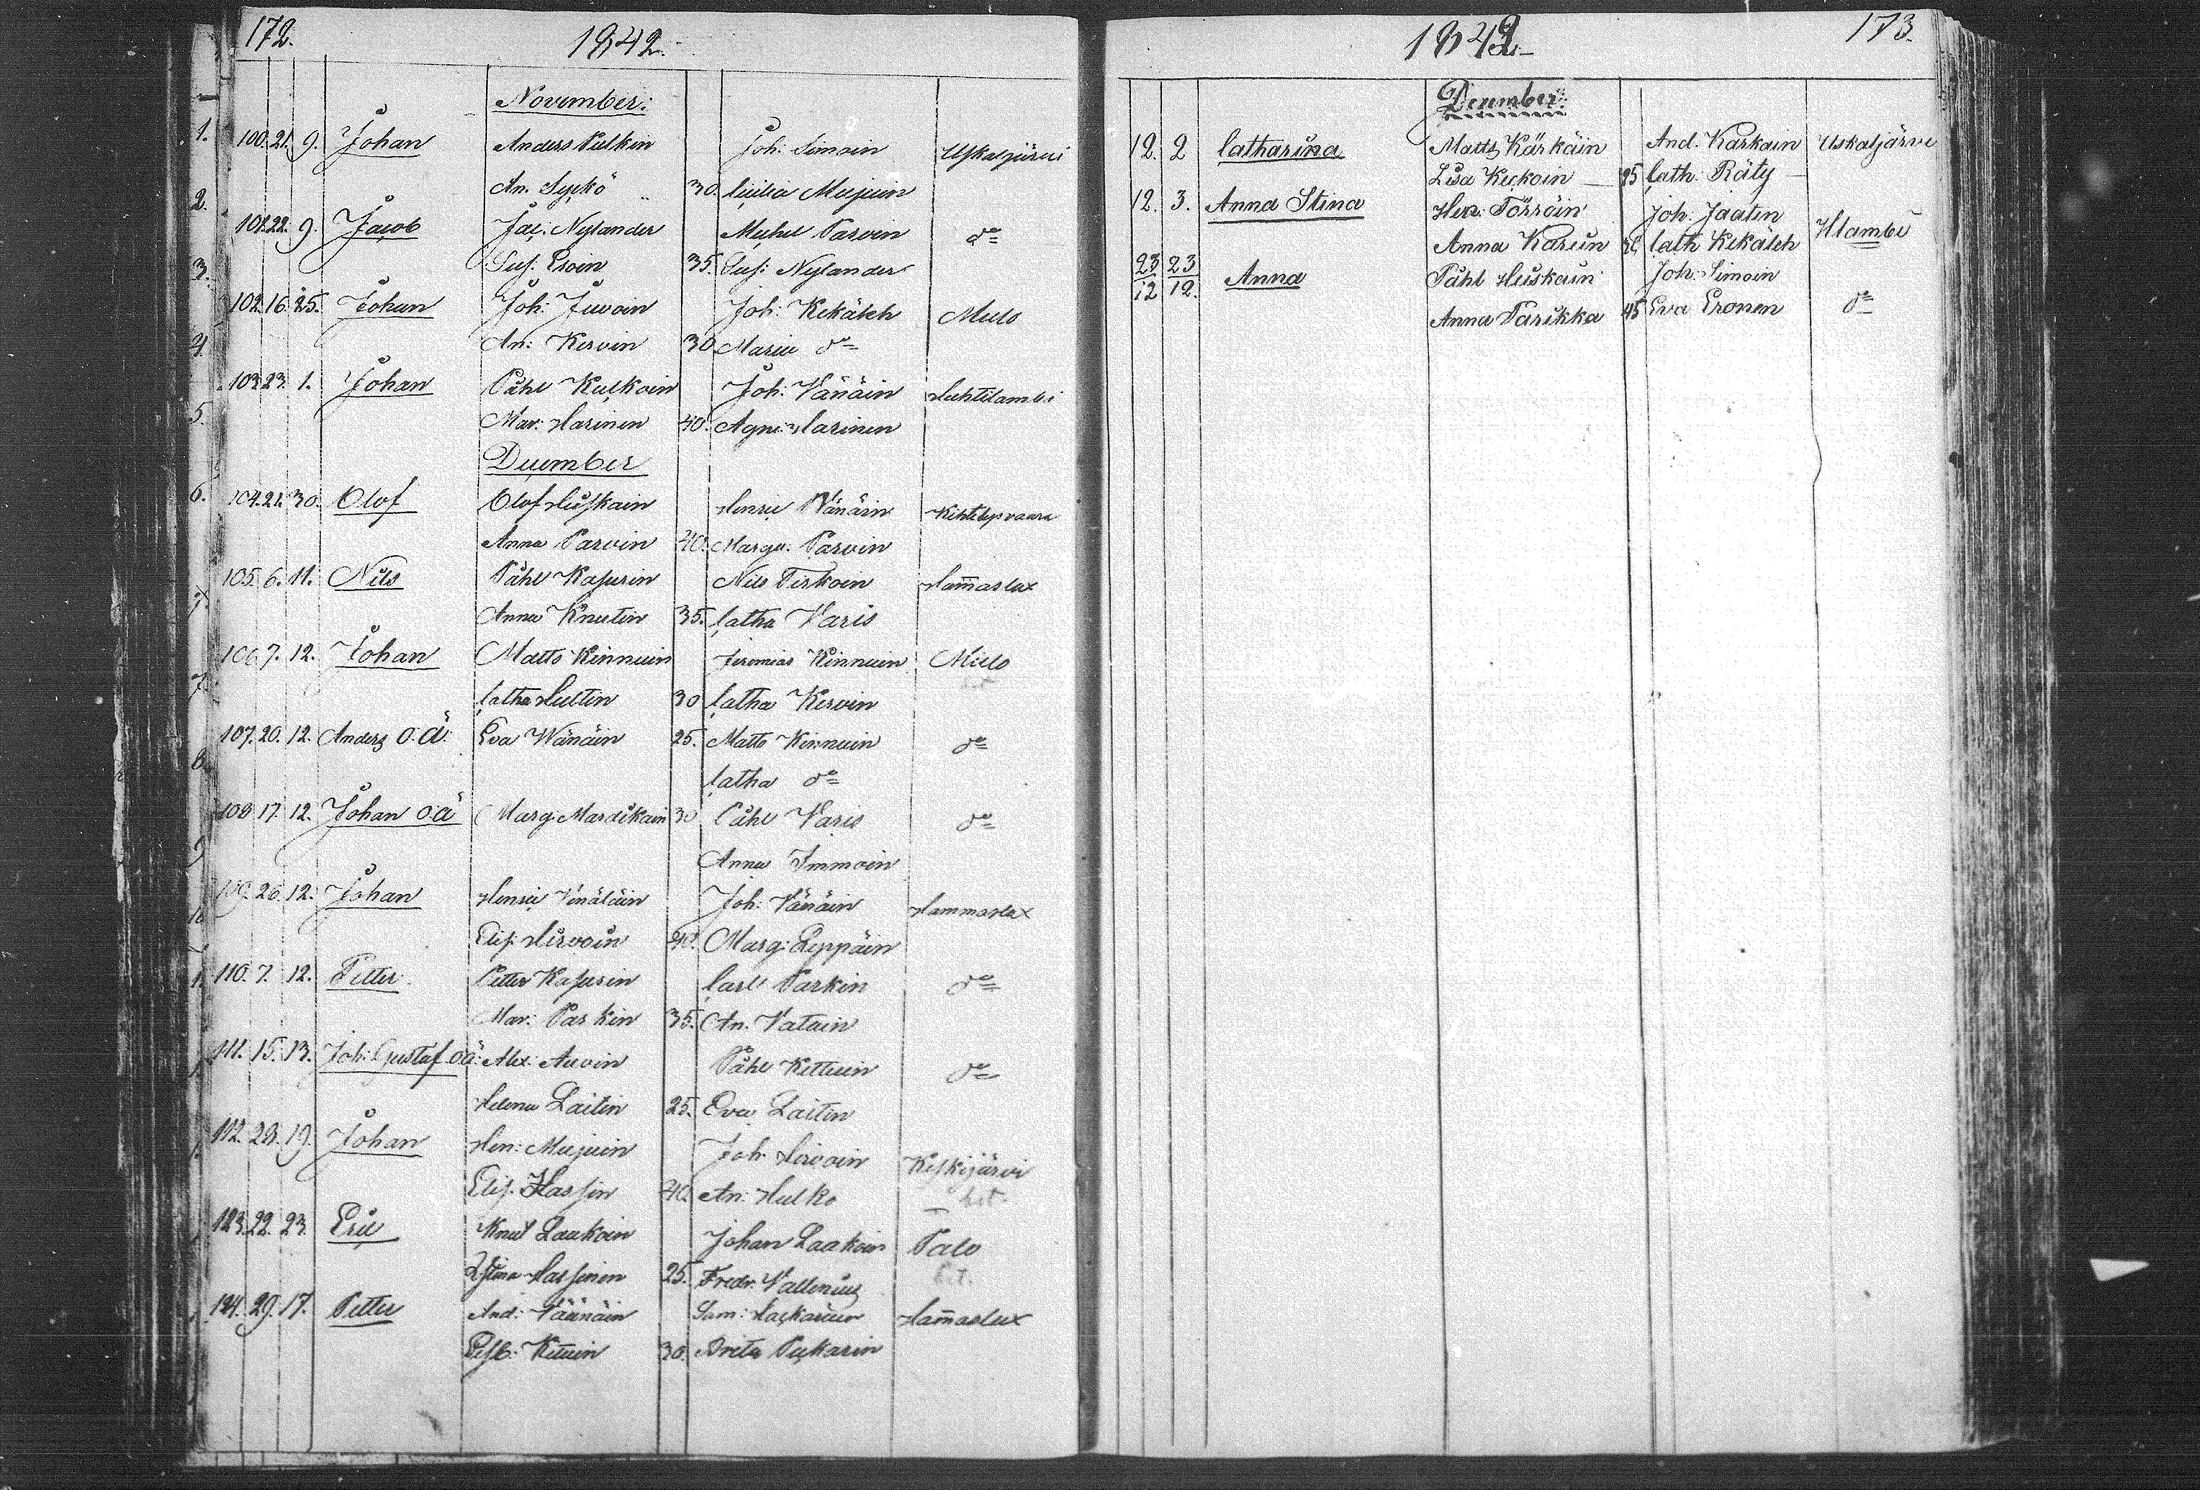 172.
1842.
November:
1.
100. 21. 9. Johan Anders Pulkin Joh: Simoin Uskaljärvi
An. Syckö 30. Cicilia Mujuin
2.
101. 22. 9. Jacob Jac. Nylander Michel Parvin do
Sus. Eroin 35. Sus: Nylander
3.
102. 16. 25. Johan Joh: Juvoin Joh: Kekäleh Mulo
An: Kervin 30 Maria do
4.
103. 23. 1. Johan Påhl Kuckoin Joh: Vänäin Huhtilambi
5.
Mar: Harinen 40. Agn: Harinen
December
6.
104. 21. 30. Olof Olof Huskain Henric Wänäin Kihtelysvaara
Anna Parvin 40. Margr. Parvin
105. 6. 11. Nils Påhl Kasurin Nils Tirkoin Ham̄aslax
Anna Knutin 35. Catha Varis
106. 7. 12. Johan Matts Kinnuin Jeremias Kinnuin Mulo
7.
Catha Hultin 30 Catha Kervin
107. 20. 12. Anders o.ä. Eva Wänäin 25. Matts Kinnuin do
8.
Catha do
108. 17. 12. Johan o.ä Marg. Mardikain 30 Påhl Varis do
Anna Immoin
109. 26. 12. Johan Henric Venäläin Joh: Vänäin Hammaslax
Elis. Hirvoin 40. Marg: Leppäin
110. 7. 12. Petter Petter Kasurin Carl Parkin do
Mar: Parkin 35. An. Vatain
111. 15. 13. Joh: Gustaf o.ä: Alex: Auvin Påhl Kettuin do
Helena Laitin 25. Eva Laitin
112. 28. 19. Johan Hen: Mujuin Joh. Hirvoin Keskijärvi
Elis. Hassin 40. An: Hulko
123. 22. 23. Eric Knut Laakoin Johan Laakoin Palo
Stina Hassinen 25. Fredr. Vallenius
124. 29. 17. Petter And: Väänäin Sam: Hackarain Ham̄aslax
Kettuin 30. Brita Puckarin
1842
173.
December:
12. 2 Catharina Matts Kärkäin And. Karkain Uskaljärvi
Lisa Keckoin 25 Cath. Räty
12. 3. Anna Stina Hen: Törröin Joh. Jaatin Hlambi
Anna Karein Cath Kekäleh
23/12 23/12. Anna Påhl Huskain Joh: Simoin do
Anna Parikka 45 Eva Eronen